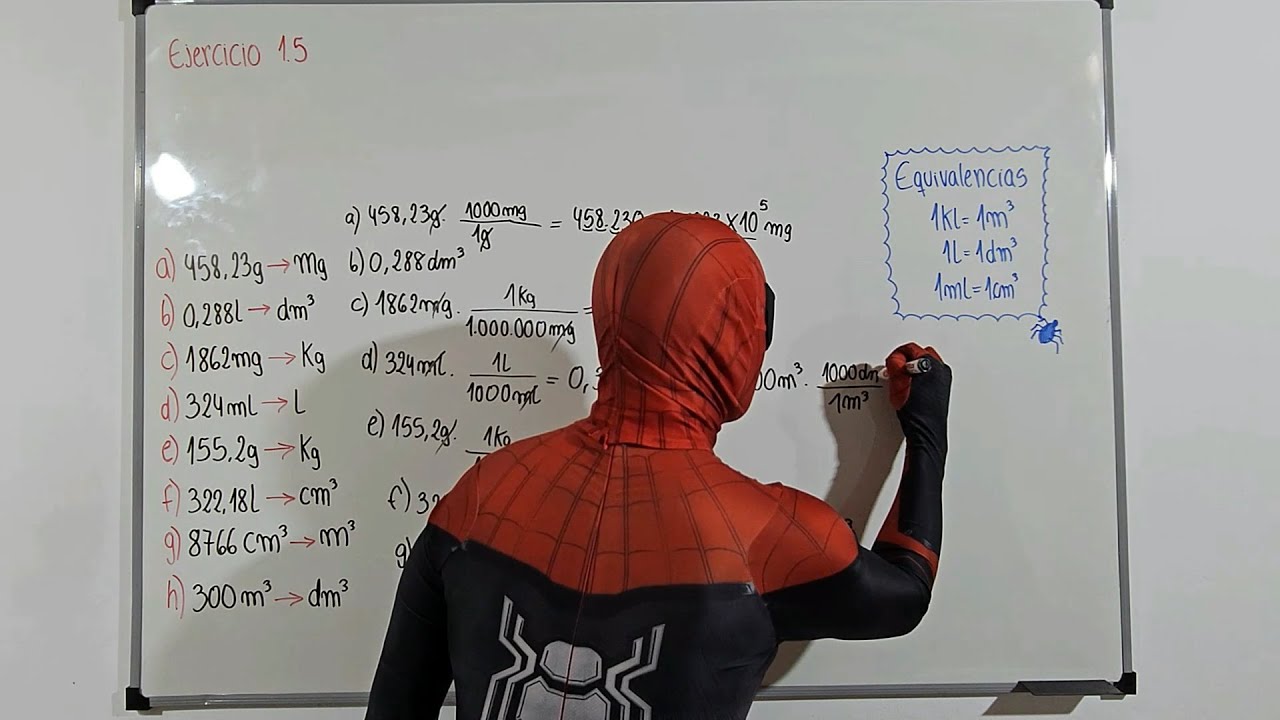 Ejercicio 1.5
a) 458,23g → mg
b) 0,288l → dm³
c) 1862mg → Kg
d) 324ml → L
e) 155,2g → Kg
f) 322,18l → cm³
g) 8766 cm³ → m³
h) 300m³ → dm³
a) 458,23g. 1000mg / 1g = 458.230 ×10⁵ mg
b) 0,288dm³
c) 1862mg. 1Kg / 1.000.000mg =
d) 324ml. 1L / 1000ml = 0,3
e) 155,2g. 1Kg
f) 32
g)
00m³. 1000dm / 1m³
Equivalencias
1kl = 1m³
1l = 1dm³
1ml = 1cm³